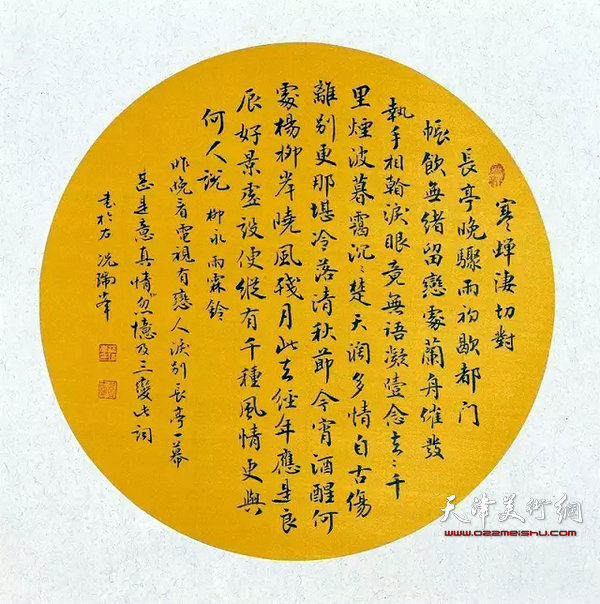 寒蟬淒切對
長亭晚驟雨初歇都門
帳飲無緒留戀處蘭舟催發
執手相看淚眼竟無語凝噎念去〻千
里煙波暮靄沉〻楚天闊多情自古傷
離別更那堪冷落清秋節今宵酒醒何
處楊柳岸曉風殘月此去經年應是良
辰好景虛設便縱有千種風情更與
何人說 柳永雨霖鈴
昨晚看電視有戀人淚別長亭一幕
甚是意真情忽憶及三變此詞
書於右 况瑞峯
天津美術網
www.022meishu.com